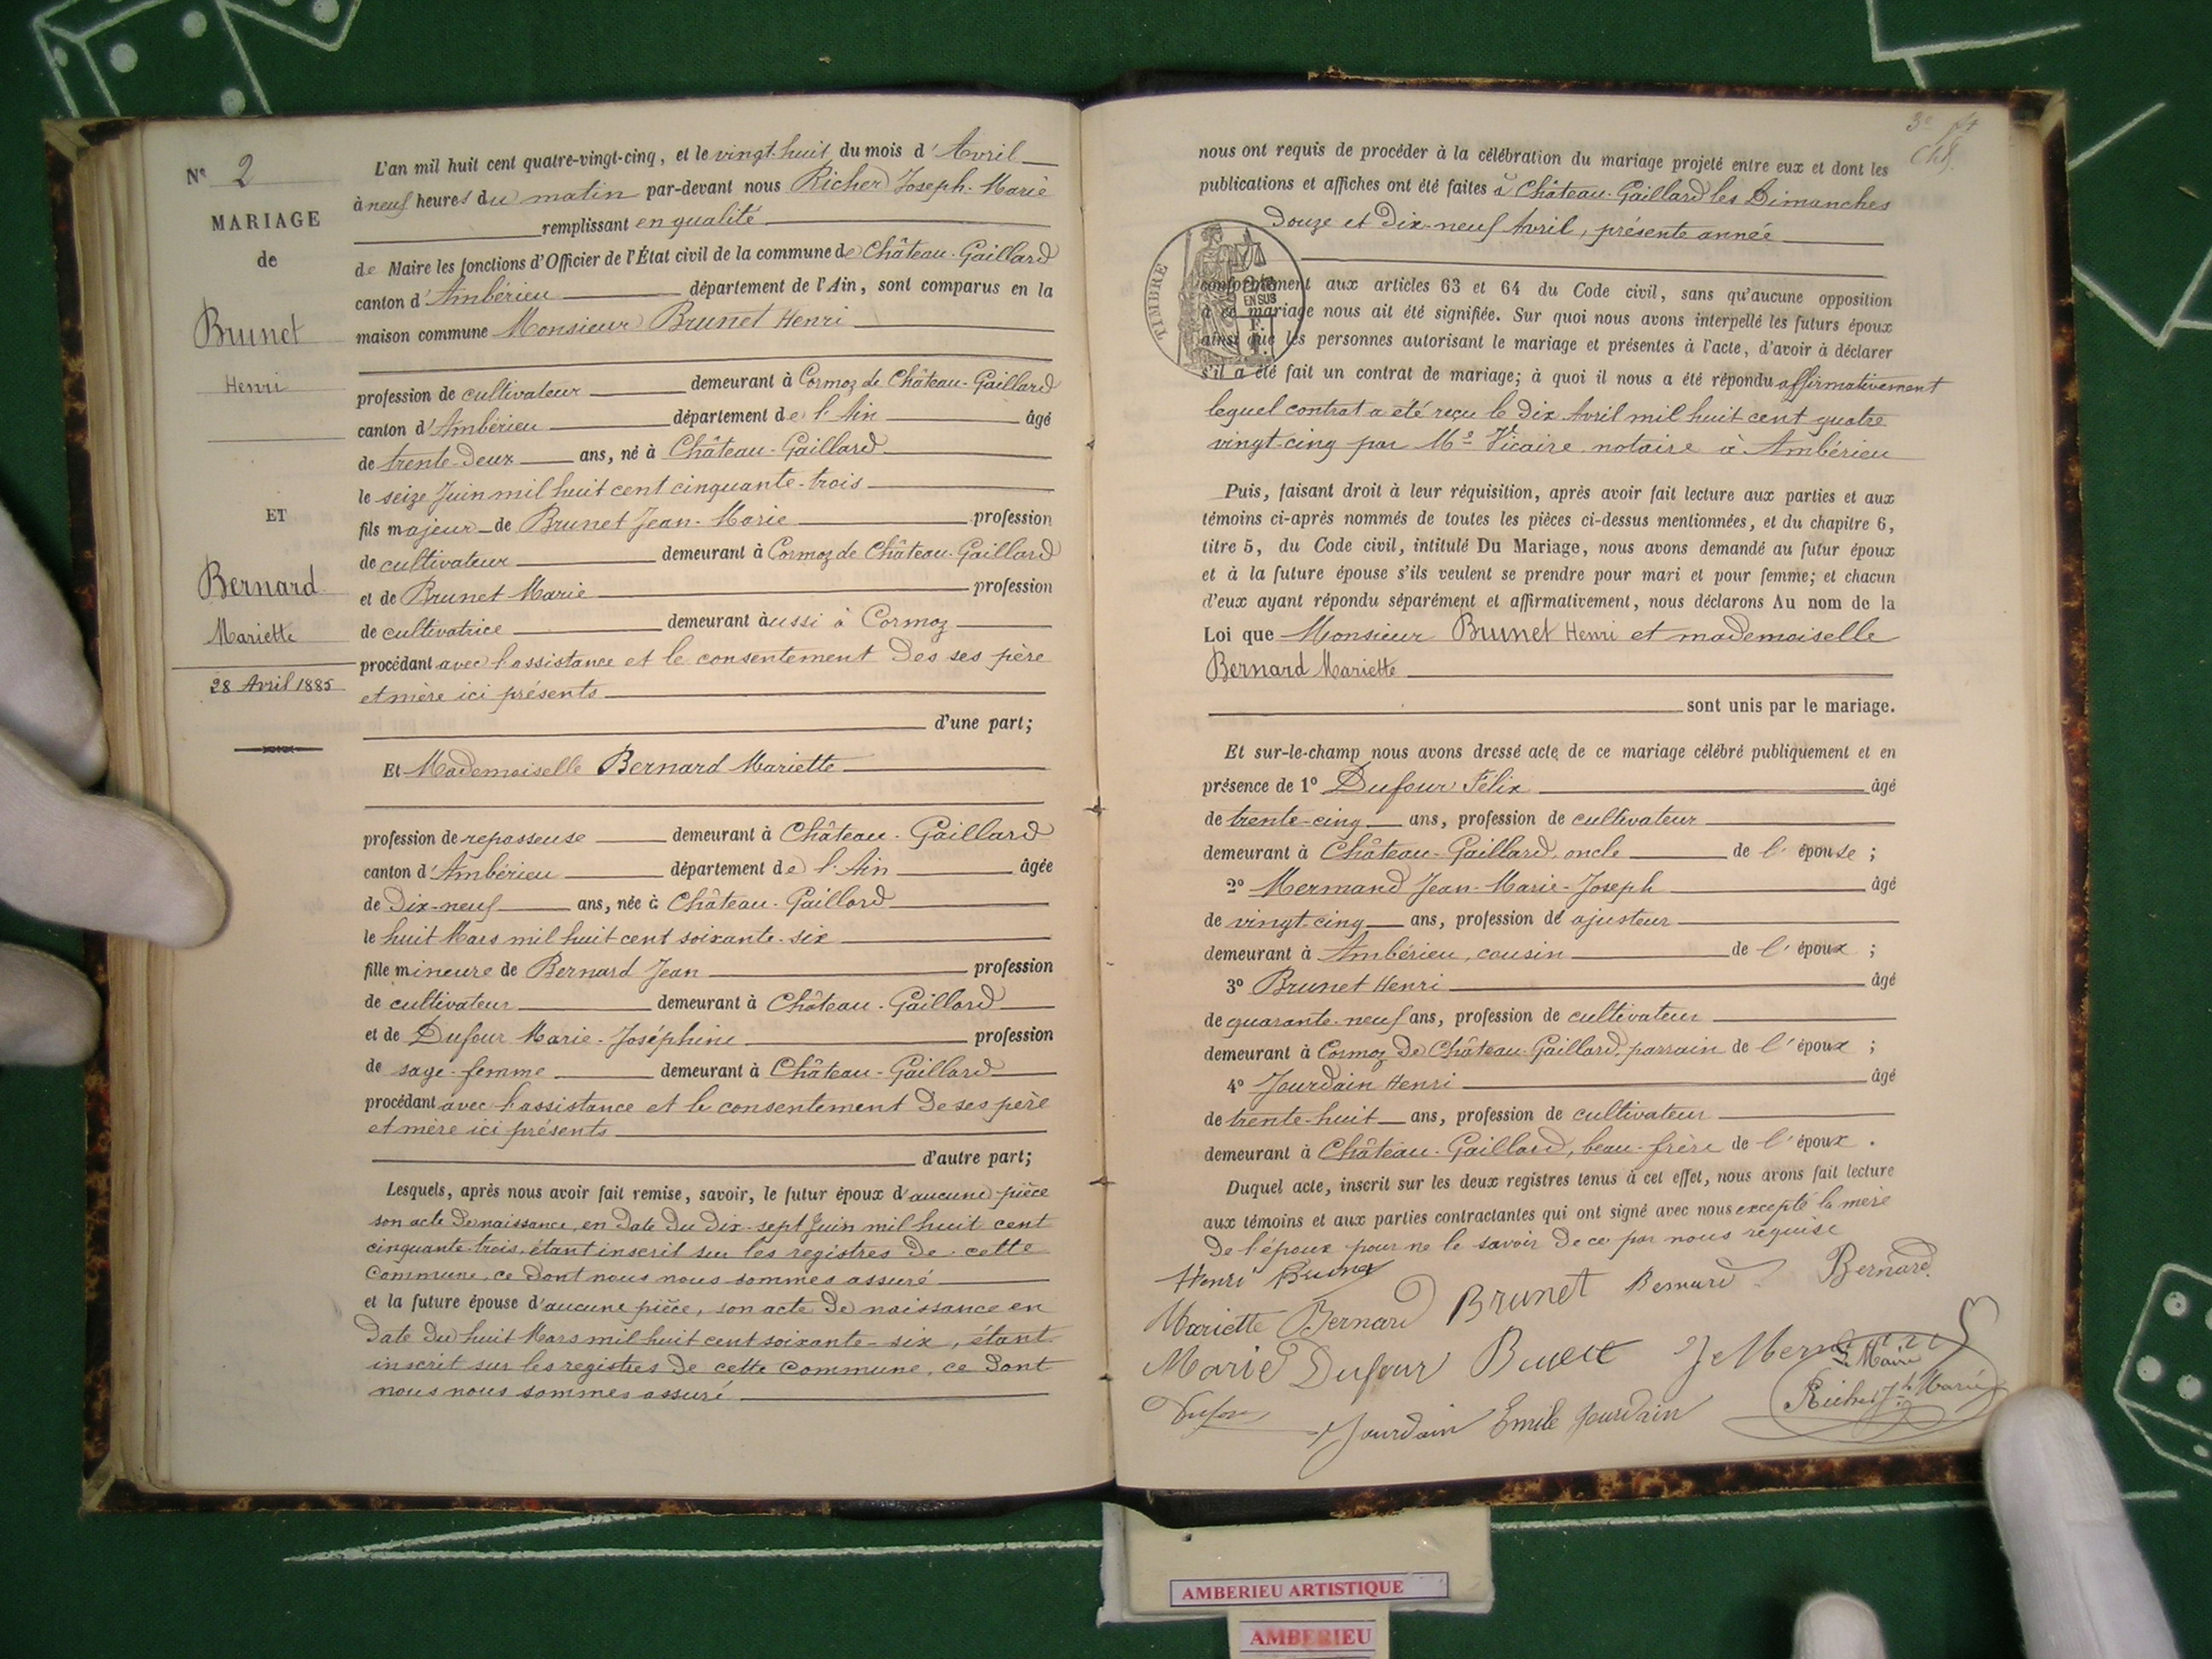 N° 2
MARIAGE
de
Brunet
Henri
ET
Bernard
Mariette
28 Avril 1885
L'an mil huit cent quatre-vingt-cinq, et le vingt-huit du mois d'Avril
à neuf heures du matin par-devant nous Richer Joseph-Marie
remplissant en qualité
de Maire les fonctions d'Officier de l'État civil de la commune de Château-Gaillard
canton d'Ambérieu département de l'Ain, sont comparus en la
maison commune Monsieur Brunet Henri
profession de cultivateur demeurant à Cormoz de Château-Gaillard
canton d'Ambérieu département de l'Ain âgé
de trente-deux ans, né à Château-Gaillard
le seize Juin mil huit cent cinquante-trois
fils majeur de Brunet Jean-Marie profession
de cultivateur demeurant à Cormoz de Château-Gaillard
et de Brunet Marie profession
de cultivatrice demeurant aussi à Cormoz
procédant avec l'assistance et le consentement des ses père
et mère ici présents
d'une part;
Et Mademoiselle Bernard Mariette
profession de repasseuse demeurant à Château-Gaillard
canton d'Ambérieu département de l'Ain âgée
de dix-neuf ans, née à Château-Gaillard
le huit Mars mil huit cent soixante-six
fille mineure de Bernard Jean profession
de cultivateur demeurant à Château-Gaillard
et de Dufour Marie-Joséphine profession
de sage-femme demeurant à Château-Gaillard
procédant avec l'assistance et le consentement de ses père
et mère ici présents
d'autre part;
Lesquels, après nous avoir fait remise, savoir, le futur époux d'aucune pièce
son acte de naissance, en date du dix-sept Juin mil huit cent
cinquante-trois, étant inscrit sur les registres de cette
Commune, ce dont nous nous sommes assuré
et la future épouse d'aucune pièce, son acte de naissance en
date du huit Mars mil huit cent soixante-six, étant
inscrit sur les registres de cette Commune, ce dont
nous nous sommes assuré
3e
nous ont requis de procéder à la célébration du mariage projeté entre eux et dont les
publications et affiches ont été faites à Château-Gaillard les Dimanches
douze et dix-neuf Avril, présente année
TIMBRE
EN SUS
conformément aux articles 63 et 64 du Code civil, sans qu'aucune opposition
à ce mariage nous ait été signifiée. Sur quoi nous avons interpellé les futurs époux
ainsi que les personnes autorisant le mariage et présentes à l'acte, d'avoir à déclarer
s'il a été fait un contrat de mariage; à quoi il nous a été répondu affirmativement
lequel contrat a été reçu le dix Avril mil huit cent quatre
vingt-cinq par Me Vicaire notaire à Ambérieu
Puis, faisant droit à leur réquisition, après avoir fait lecture aux parties et aux
témoins ci-après nommés de toutes les pièces ci-dessus mentionnées, et du chapitre 6,
titre 5, du Code civil, intitulé Du Mariage, nous avons demandé au futur époux
et à la future épouse s'ils veulent se prendre pour mari et pour femme; et chacun
d'eux ayant répondu séparément et affirmativement, nous déclarons Au nom de la
Loi que Monsieur Brunet Henri et mademoiselle
Bernard Mariette
sont unis par le mariage.
Et sur-le-champ nous avons dressé acte de ce mariage célébré publiquement et en
présence de 1° Dufour Félix âgé
de trente-cinq ans, profession de cultivateur
demeurant à Château-Gaillard, oncle de l'épouse ;
2° Mermand Jean-Marie-Joseph âgé
de vingt-cinq ans, profession de ajusteur
demeurant à Ambérieu, cousin de l'époux ;
3° Brunet Henri âgé
de quarante-neuf ans, profession de cultivateur
demeurant à Cormoz de Château-Gaillard, parrain de l'époux ;
4° Jourdain Henri âgé
de trente-huit ans, profession de cultivateur
demeurant à Château-Gaillard, beau-frère de l'époux.
Duquel acte, inscrit sur les deux registres tenus à cet effet, nous avons fait lecture
aux témoins et aux parties contractantes qui ont signé avec nous excepté la mère
de l'époux pour ne le savoir de ce par nous requise
Henri Brunet
Mariette Bernard Brunet Bernard Bernard
Marie Dufour
Le Maire
Jourdain Emile Jourdain Richer Jh Marie
AMBERIEU ARTISTIQUE
AMBERIEU